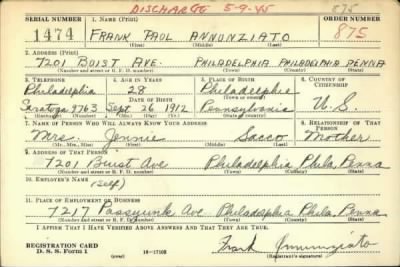 DISCHARGE 5-9-45 875
SERIAL NUMBER 1. Name (Print) ORDER NUMBER
1474 FRANK PAUL ANNUNZIATO 875
(First) (Middle) (Last)
2. Address (Print)
7201 BUIST AVE. PHILADELPHIA PHILADELPHIA PENNA
(Number and street or R. F. D. number) (Town) (County) (State)
3. Telephone 4. Age in Years 5. Place of Birth 6. Country of Citizenship
Philadelphia 28 Philadelphia
Date of Birth (Town or county)
Saratoga 9763 Sept 26, 1912 Pennsylvania U.S.
(Exchange) (Number) (Mo.) (Day) (Yr.) (State or country)
7. Name of Person Who Will Always Know Your Address 8. Relationship of That Person
Mrs. Jennie Sacco Mother
(Mr., Mrs., Miss) (First) (Middle) (Last)
9. Address of That Person
7201 Buist Ave Philadelphia Phila. Penna
(Number and street or R. F. D. number) (Town) (County) (State)
10. Employer's Name
(Self)
11. Place of Employment or Business
7217 Passyunk Ave Philadelphia Phila. Penna
(Number and street or R. F. D. number) (Town) (County) (State)
I Affirm That I Have Verified Above Answers and That They Are True.
REGISTRATION CARD
D. S. S. Form 1 16-17105 Frank Annunziato
(Registrant's signature)